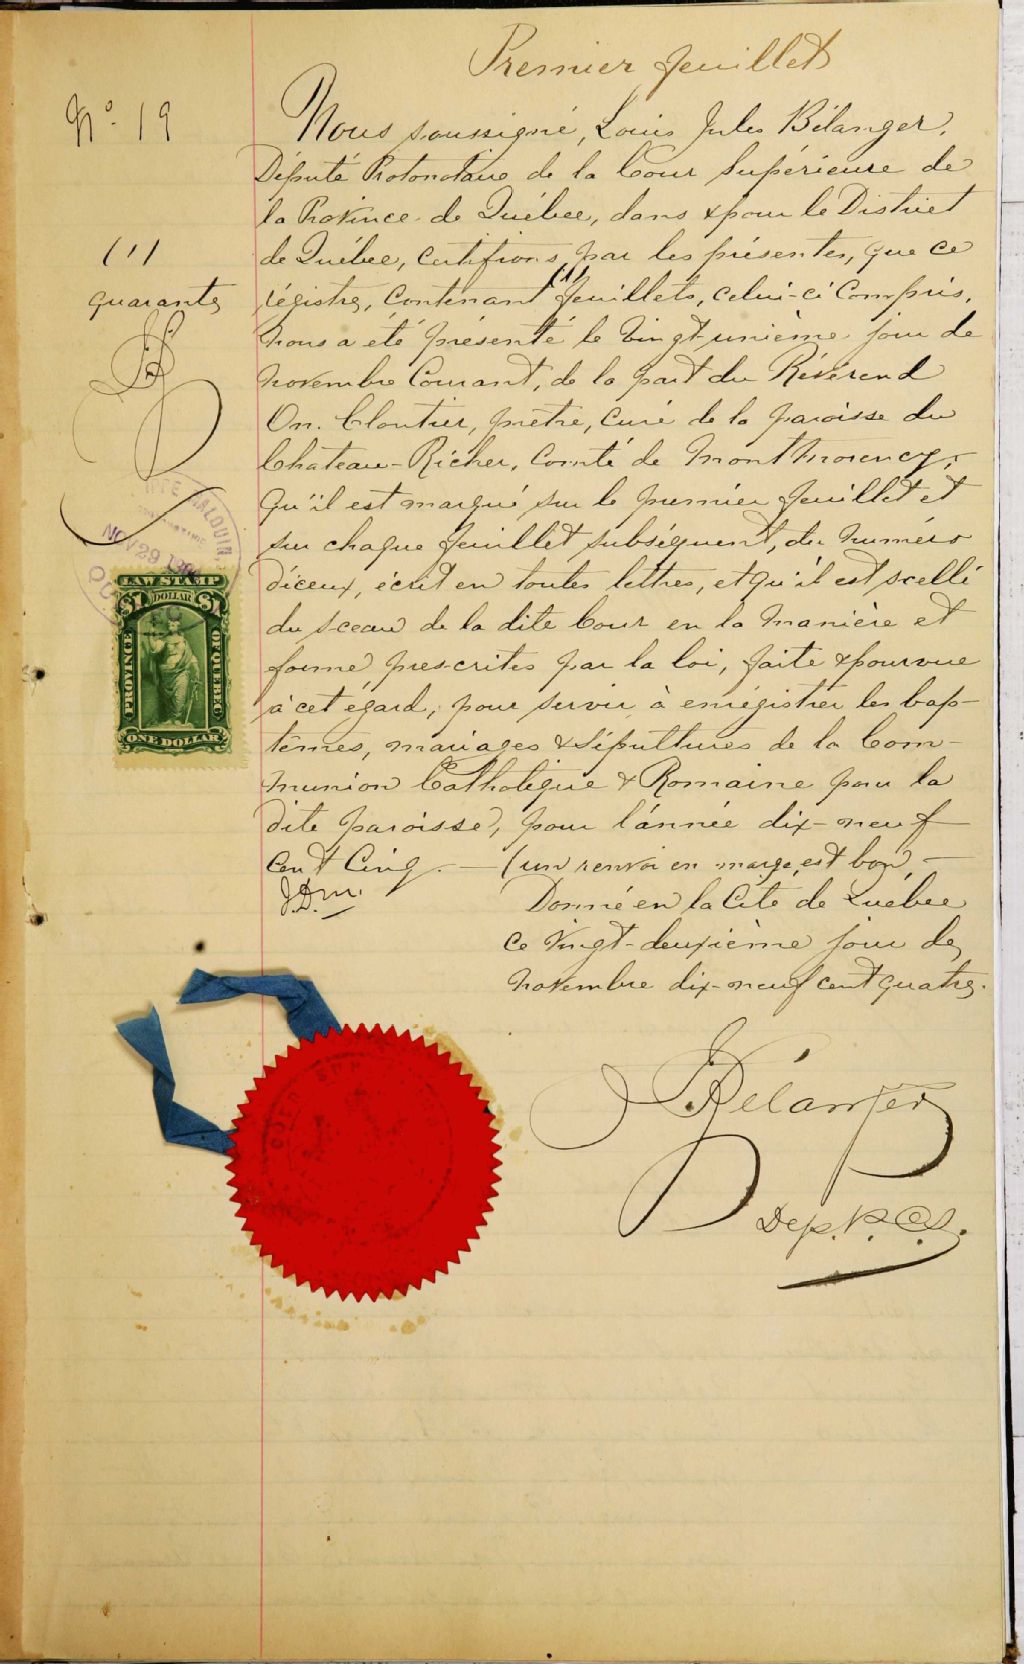 Premier feuillet
No. 19
Nous soussigné, Louis Jules Bélanger,
Député Protonotaire de la Cour Supérieure de
la Province de Québec, dans & pour le District
de Québec, certifions, par les présentes, que ce
régistre, contenant (1) feuillets, celui-ci compris,
(1)
quarante
nous a été présenté le vingt-unième jour de
novembre courant, de la part du Révérend
On. Cloutier, prêtre, curé de la paroisse du
Chateau-Richer, Comté de Montmorency;
qu'il est marqué sur le premier feuillet et
sur chaque feuillet subséquent, du numéro
d'iceux, écrit en toutes lettres, et qu'il est scellé
du sceau de la dite Cour en la manière et
forme, prescrites par la loi, faite & pourvue
à cet egard, pour servir à enrégistrer les bap-
têmes, mariages & sépultures de la Com-
munion Catholique & Romaine pour la
dite paroisse, pour l'année dix-neuf
cent cinq. — (un renvoi en marge est bon) —
Donné en la Cité de Québec
ce vingt-deuxième jour de
novembre dix-neuf cent quatre.
NOV 29
LAW STAMP
$1 DOLLAR $1
PROVINCE OF QUEBEC
ONE DOLLAR
Bélanger
Dep. P. C. S.